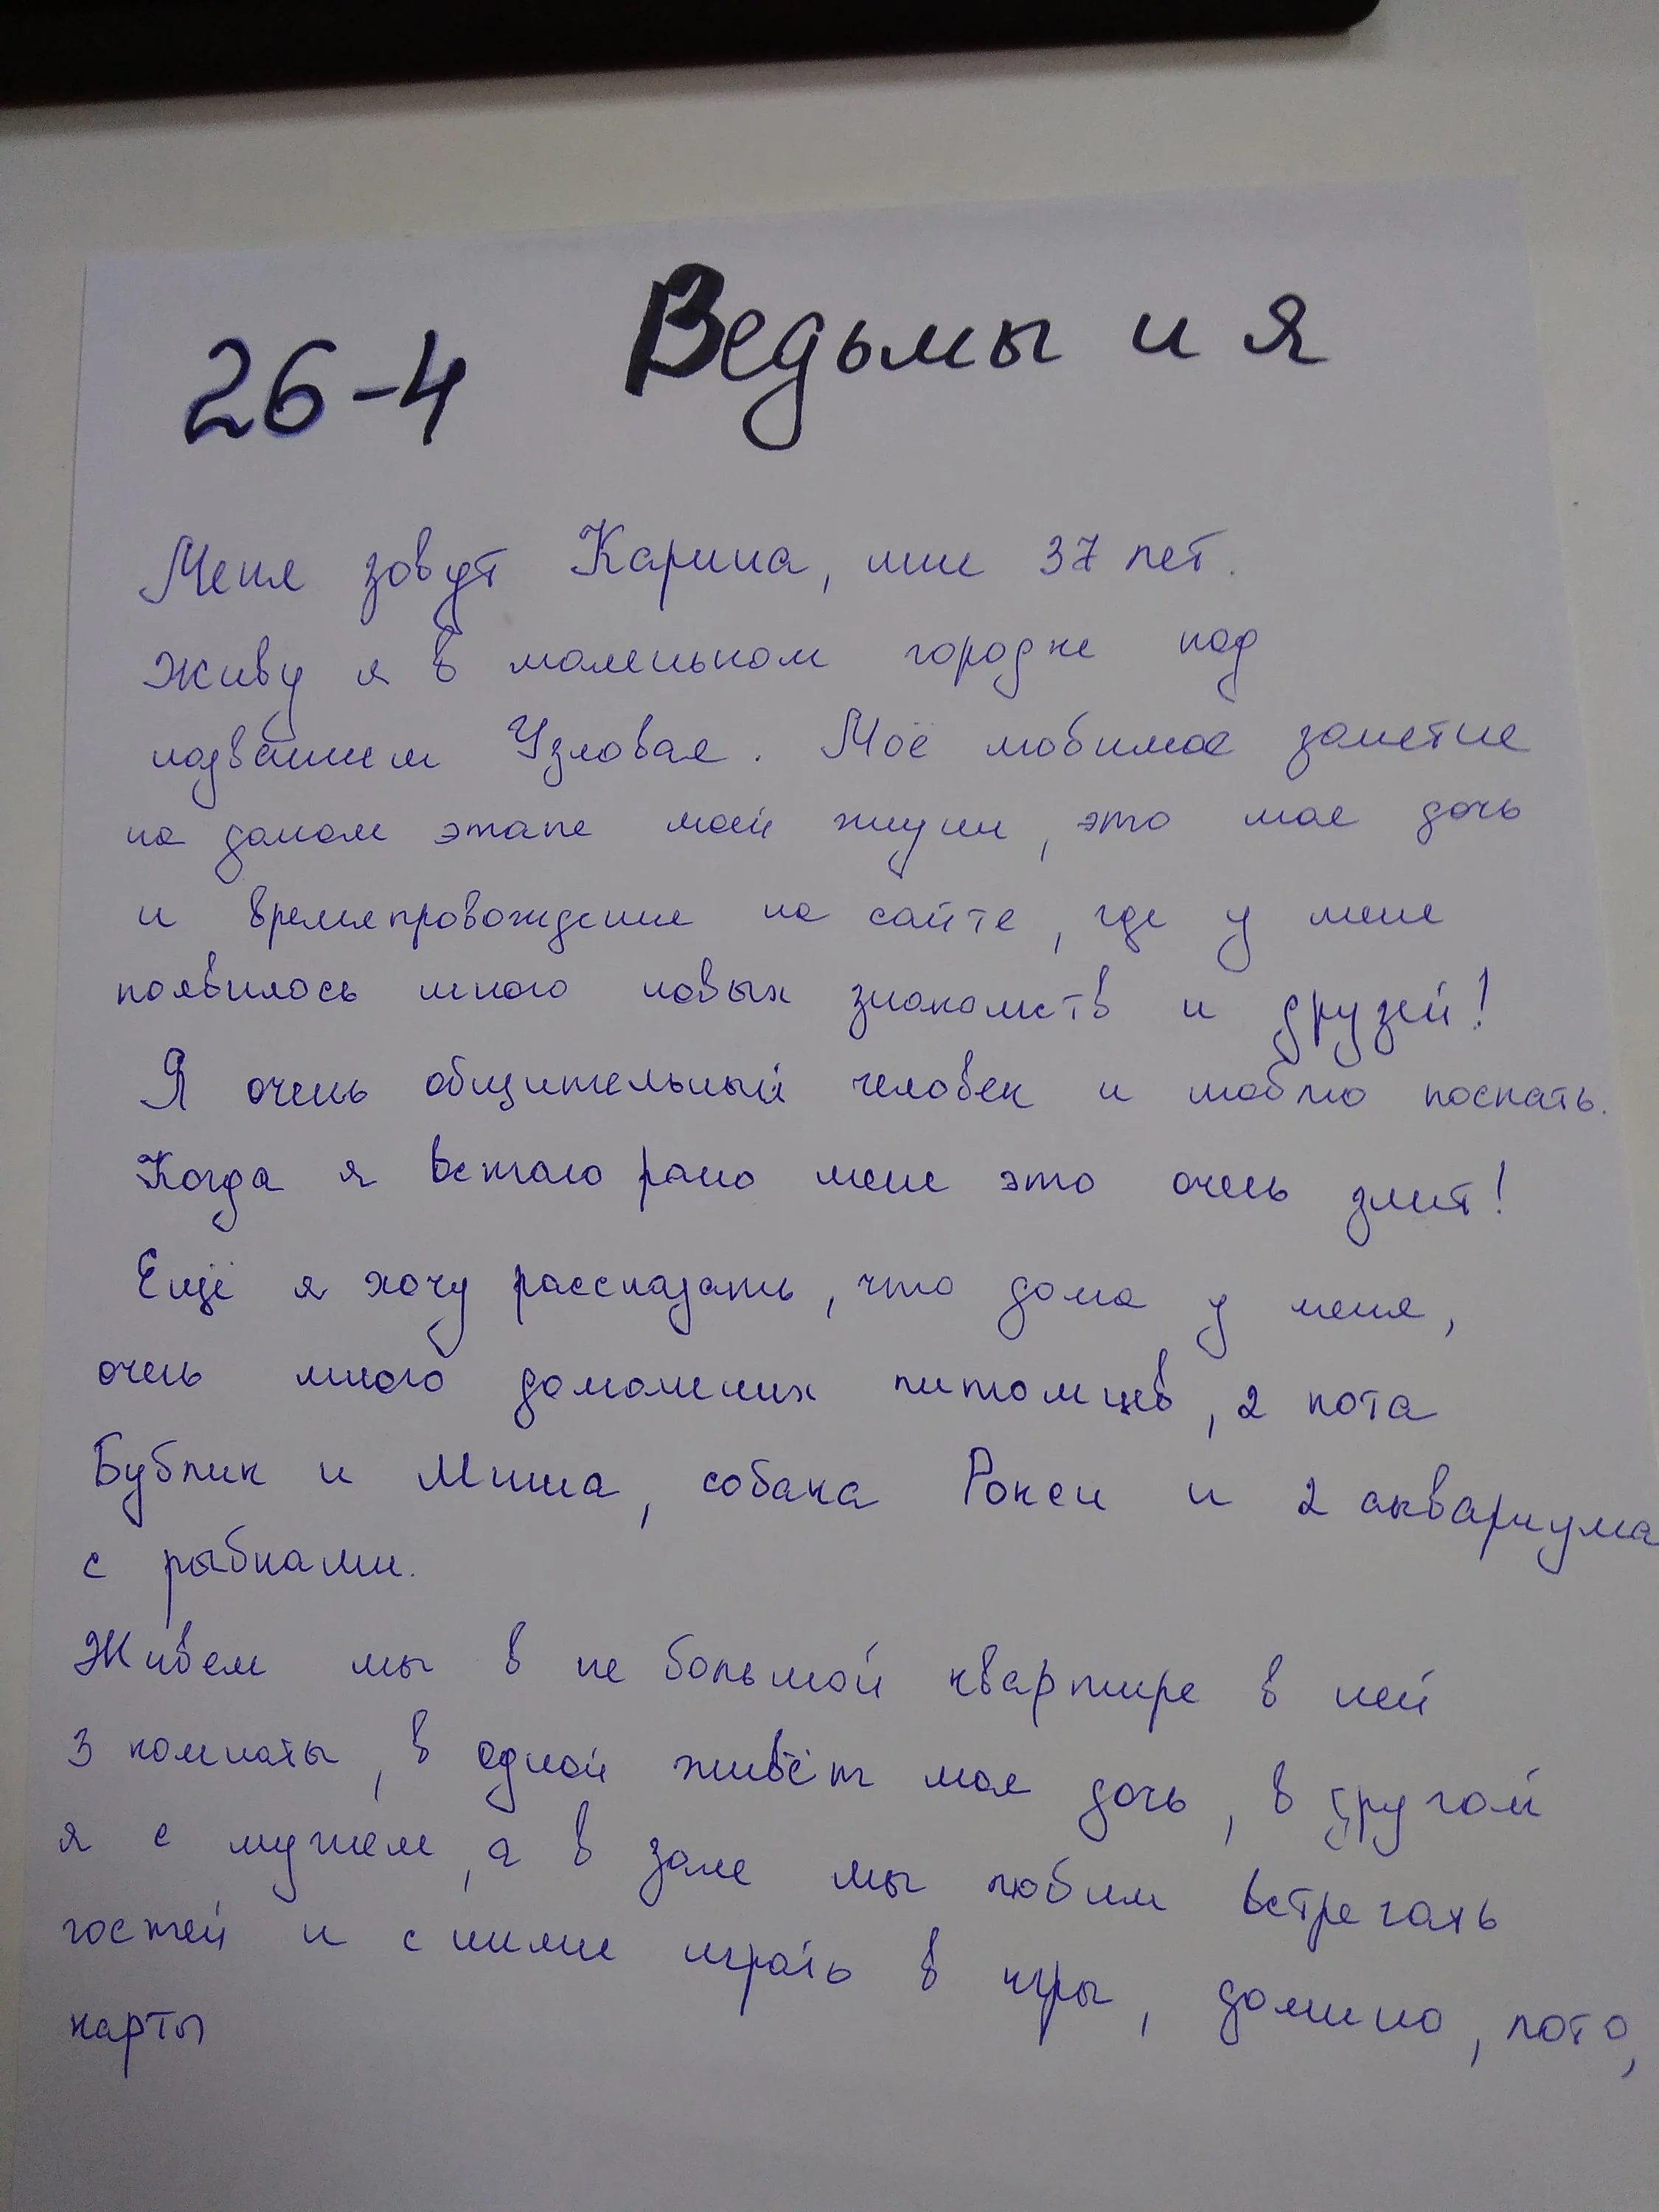 26-4 Ведьмы и я
Меня зовут Карина, мне 37 лет.
Живу я в маленьком городке под
названием Узловая. Моё любимое занятие
на даном этапе моей жизни, это моя дочь
и времяпровождение на сайте, где у меня
появилось много новых знакомств и друзей!
Я очень общительный человек и люблю поспать.
Когда я встаю рано меня это очень злит!
Ещё я хочу рассказать, что дома у меня,
очень много домашних питомцев, 2 кота
Бублик и Миша, собака Рокси и 2 аквариума
с рыбками.
Живем мы в не большой квартире в ней
3 комнаты, в одной живёт моя дочь, в другой
я с мужем, а в зале мы любим встречать
гостей и с ними играть в игры, домино, лото,
карты